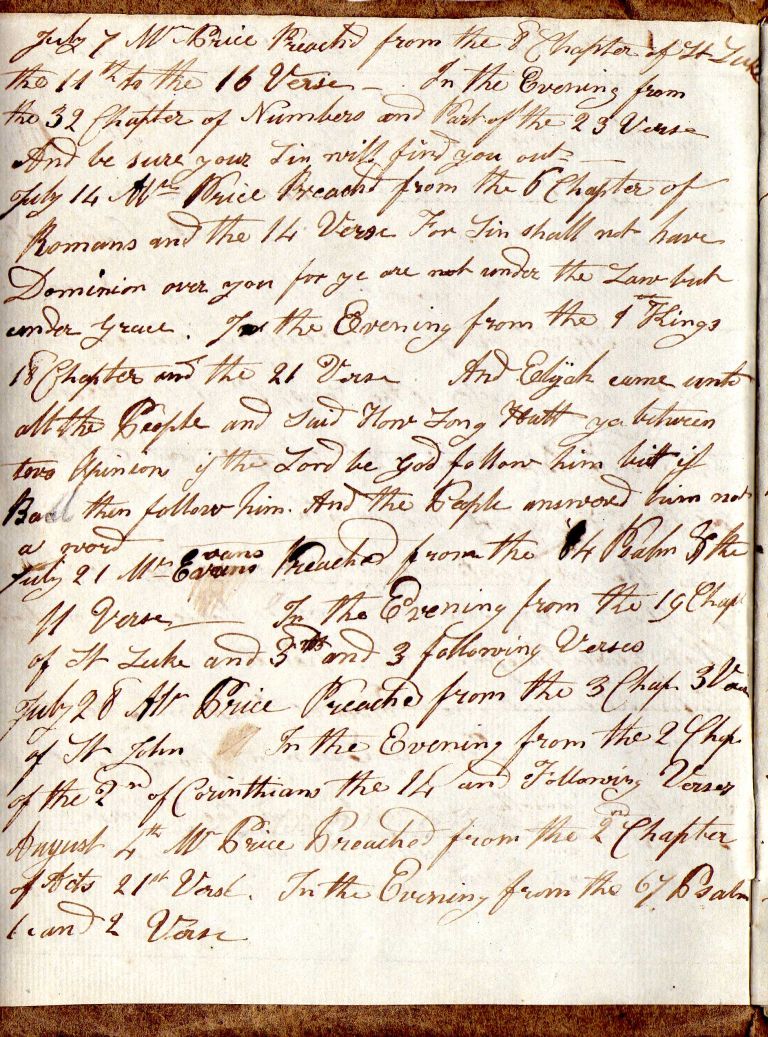 July 7 Mr Price Preachd from the 8 Chapter of St Luke
the 11th to the 16 Verse — In the Evening from
the 32 Chapter of Numbers and Part of the 23 Verse
And be sure your Sin will find you out —
July 14 Mr Price Preachd from the 6 Chapter of
Romans and the 14 Verse For Sin shall not have
Dominion over you for ye are not under the Law but
under Grace. In the Evening from the 1st Kings
18 Chapter and the 21 Verse And Elijah came unto
all the People and said How Long Hatt ye between
two Opinion if the Lord be God follow him but if
Baal then follow him. And the People answered him not
a word
July 21 Mr Evans Preached from the 84 Psalm & the
11 Verse — In the Evening from the 19 Chap
of St Luke and 3th and 3 following Verses
July 28 Mr Price Preached from the 3 Chap. 3 Ver
of St John In the Evening from the 2 Chap
of the 2n of Corinthians the 14 and Following Verses
August 4th Mr Price Preached from the 2nd Chapter
of Acts 21st Verse. In the Evening from the 67 Psalm
1 and 2 Verse